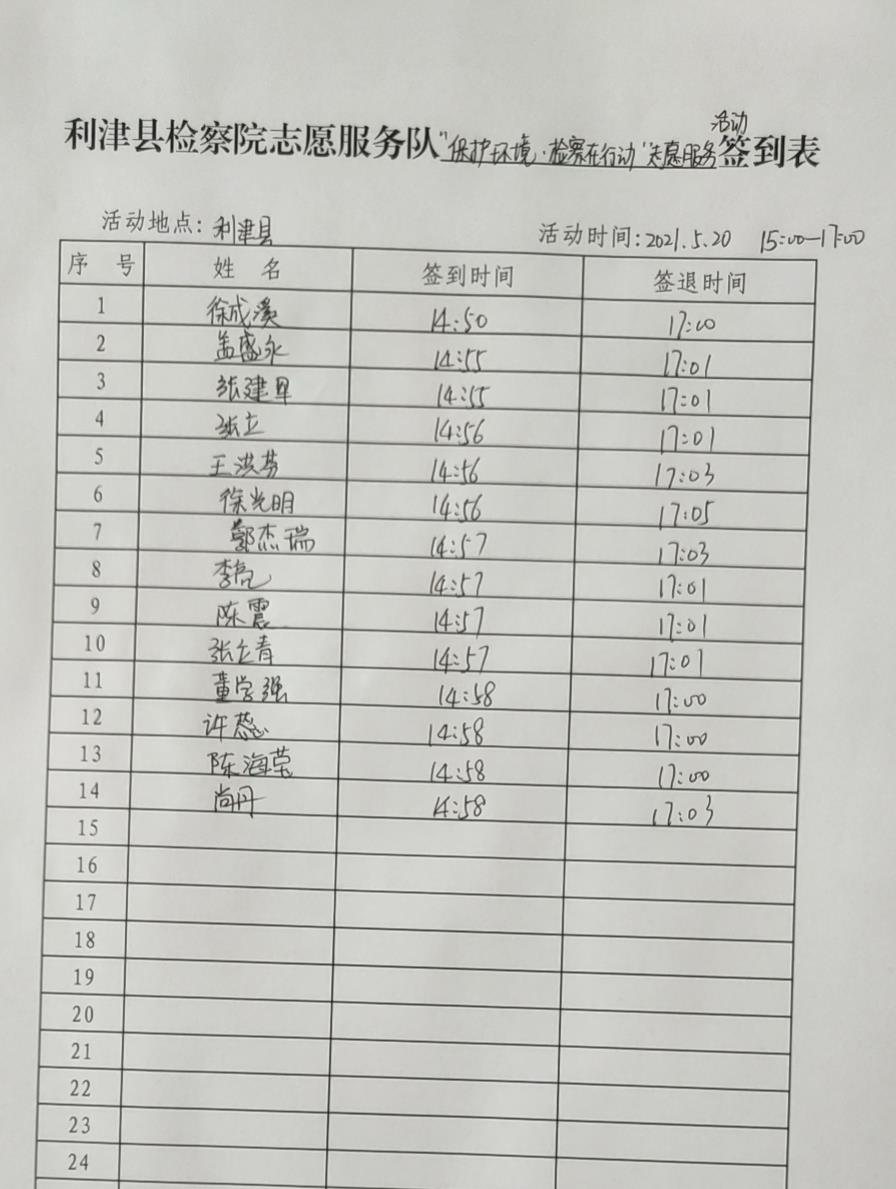 利津县检察院志愿服务队"保护环境·检察在行动"志愿服务活动签到表
活动地点:利津县 活动时间:2021.5.20 15:00-17:00
序号 姓名 签到时间 签退时间
1 徐成溪 14:50 17:00
2 孟盛永 14:55 17:01
3 张建 14:55 17:01
4 张立 14:56 17:01
5 王洪芬 14:56 17:03
6 徐光明 14:56 17:05
7 郭杰瑞 14:57 17:03
8 李亮 14:57 17:01
9 陈震 14:57 17:01
10 张立青 14:57 17:01
11 董学强 14:58 17:00
12 许蕊 14:58 17:00
13 陈海莹 14:58 17:00
14 尚丹 14:58 17:03
15
16
17
18
19
20
21
22
23
24